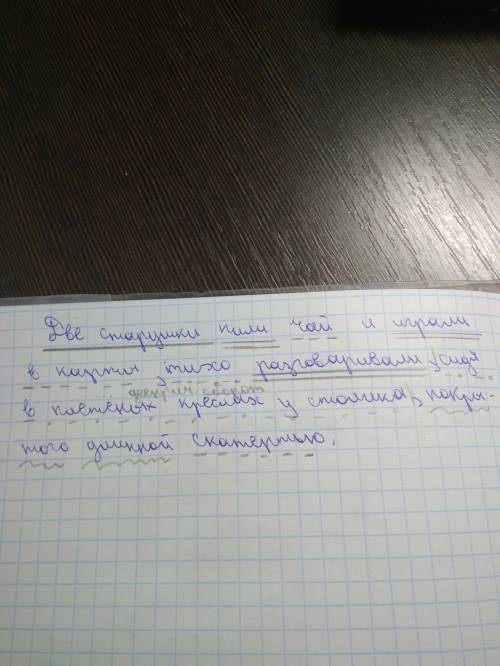 Две старушки пили чай и играли
в карты, тихо разговаривали, сидя
дееприч. оборот
в плетёных креслах у столика, покры-
того длинной скатертью.